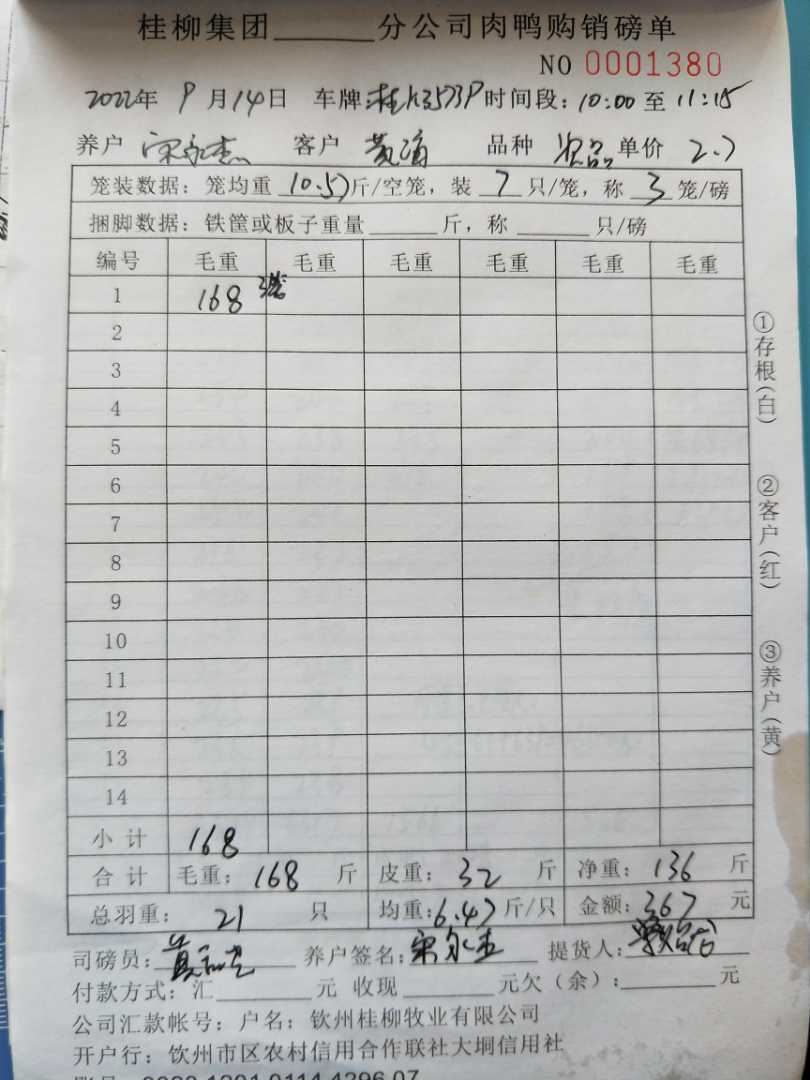 桂柳集团______分公司肉鸭购销磅单
NO 0001380
2022年 9月14日 车牌:桂 时间段:10:00至11:15
养户 宋永杰 客户 黄海 品种 单价 2.7
笼装数据:笼均重 10.57斤/空笼,装 7 只/笼,称 3 笼/磅
捆脚数据:铁筐或板子重量______斤,称______只/磅
编号 毛重 毛重 毛重 毛重 毛重 毛重
1 168 3笼
2
3
4
5
6
7
8
9
10
11
12
13
14
小计 168
合计 毛重:168 斤 皮重:32 斤 净重:136 斤
总羽重:21 只 均重:6.47斤/只 金额:367 元
司磅员: 养户签名:宋永杰 提货人:
付款方式:汇______元 收现______元欠(余):______元
公司汇款帐号:户名:钦州桂柳牧业有限公司
开户行:钦州市区农村信用合作联社大垌信用社
①存根(白)
②客户(红)
③养户(黄)